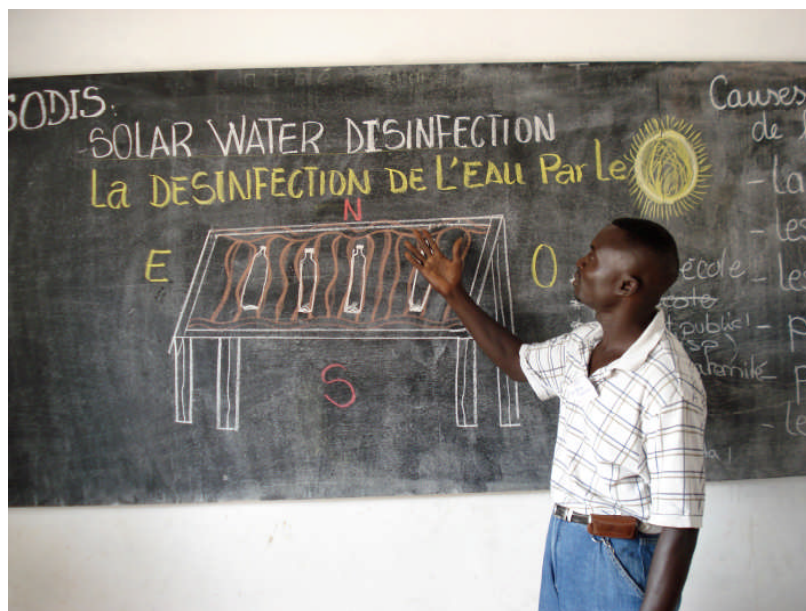 SODIS:
SOLAR WATER DISINFECTION
La DESINFECTION DE L'EAU Par Le
N
E
O
S
Causes
de
- La
- Les
école
- Le
public!
- P
- P
- le